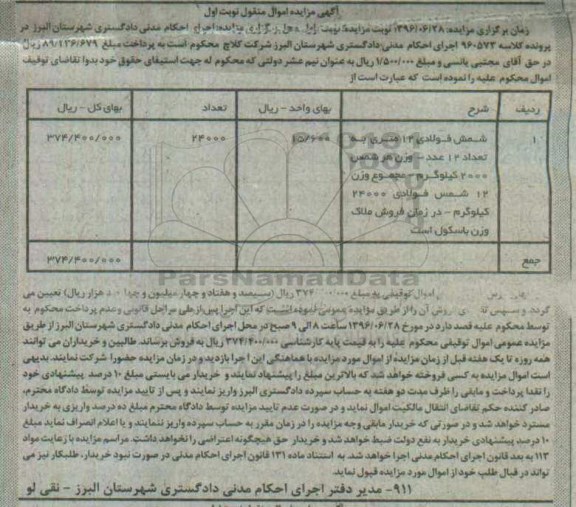 آگهی مزایده اموال منقول نوبت اول
زمان برگزاری مزایده: ۱۳۹۶/۰۶/۲۸ نوبت مزایده: نوبت اول محل برگزاری مزایده: اجرای احکام مدنی دادگستری شهرستان البرز در
پرونده کلاسه ۹۶۰۵۷۳ اجرای احکام مدنی دادگستری شهرستان البرز شرکت کلاچ محکوم است به پرداخت مبلغ ۸۹/۱۳۶/۶۷۹ ریال
در حق آقای مجتبی یاسی و مبلغ ۱/۵۰۰/۰۰۰ ریال به عنوان نیم عشر دولتی که محکوم له جهت استیفای حقوق خود بدوا تقاضای توقیف
اموال محکوم علیه را نموده است که عبارت است از
ردیف شرح بهای واحد - ریال تعداد بهای کل - ریال
۱ شمش فولادی ۱۲ متری به ۱۵/۶۰۰ ۲۴۰۰۰ ۳۷۴/۴۰۰/۰۰۰
تعداد ۱۲ عدد - وزن هر شمش
۲۰۰۰ کیلوگرم - مجموع وزن
۱۲ شمس فولادی ۲۴۰۰۰
کیلوگرم - در زمان فروش ملاک
وزن باسکول است
جمع ۳۷۴/۴۰۰/۰۰۰
ParsNamadData
اموال توقیفی به مبلغ ریال (سیصد و هفتاد و چهار میلیون و چهارصد هزار ریال) تعیین می
گردد و سپس فروش آن را از طریق مزایده عمومی نموده است که این اجرا پس از طی مراحل قانونی و عدم پرداخت محکوم به
توسط محکوم علیه قصد دارد در مورخ ۱۳۹۶/۰۶/۲۸ ساعت ۸ الی ۹ صبح در محل اجرای احکام مدنی دادگستری شهرستان البرز از طریق
مزایده عمومی اموال توقیفی محکوم علیه را به قیمت پایه کارشناسی ۳۷۴/۴۰۰/۰۰۰ ریال به فروش برساند. طالبین و خریداران می توانند
همه روزه تا یک هفته قبل از زمان مزایده از اموال مورد مزایده با هماهنگی این اجرا بازدید و در زمان مزایده حضورا شرکت نمایند. بدیهی
است اموال مزایده به کسی فروخته خواهد شد که بالاترین مبلغ را پیشنهاد نماید و خریدار می بایستی مبلغ ۱۰ درصد پیشنهادی خود
را نقدا پرداخت و مابقی را ظرف مدت دو هفته به حساب سپرده دادگستری البرز واریز نمایند و پس از تایید مزایده توسط دادگاه محترم،
صادر کننده حکم تقاضای انتقال مالکیت اموال نماید و در صورت عدم تایید مزایده توسط دادگاه محترم مبلغ ده درصد واریزی به خریدار
مسترد خواهد شد و در صورتی که خریدار مابقی وجه مزایده را در زمان مقرر به حساب سپرده واریز ننمایند و یا اعلام انصراف نماید مبلغ
۱۰ درصد پیشنهادی خریدار به نفع دولت ضبط خواهد شد و خریدار حق هیچگونه اعتراضی را نخواهد داشت. مراسم مزایده با رعایت مواد
۱۱۳ به بعد قانون اجرای احکام مدنی اجرا خواهد شد. به استناد ماده ۱۳۱ قانون اجرای احکام مدنی در صورت نبود خریدار، طلبکار نیز می
تواند در قبال طلب خود از اموال مورد مزایده قبول نماید.
۹۱۱- مدیر دفتر اجرای احکام مدنی دادگستری شهرستان البرز - نقی لو